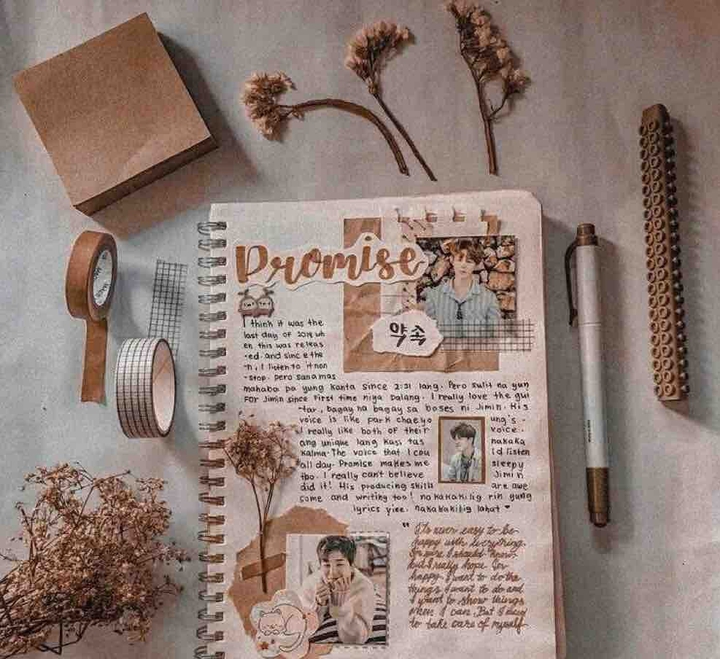 Promise
약속
I think it was the
last day of 2018 wh
en this was releas
-ed. and since the
-n, I listen to it non
-stop. Pero sana mas
mahaba pa yung kanta since 2:31 lang. Pero sulit na yun
FOR Jimin since first time niya palang. I really love the gui
-tar, bagay na bagay sa boses ni Jimin. His
voice is like park chaeyo ung's.
I really like both of their voice.
ang unique lang kasi tas nakaka
kalma. The voice that I cou ld listen
all day. Promise makes me sleepy
too. I really can't believe Jimin
did it! His producing skills are awe
some and writing too! nakakakilig rin yung
lyrics yiee. nakakakilig lahat
" It's never easy to be
happy with everything.
I'm sure I should know
but I really hope for
happy. I want to do the
things I want to do and
I want to show things
when I can. But I need
to take care of myself